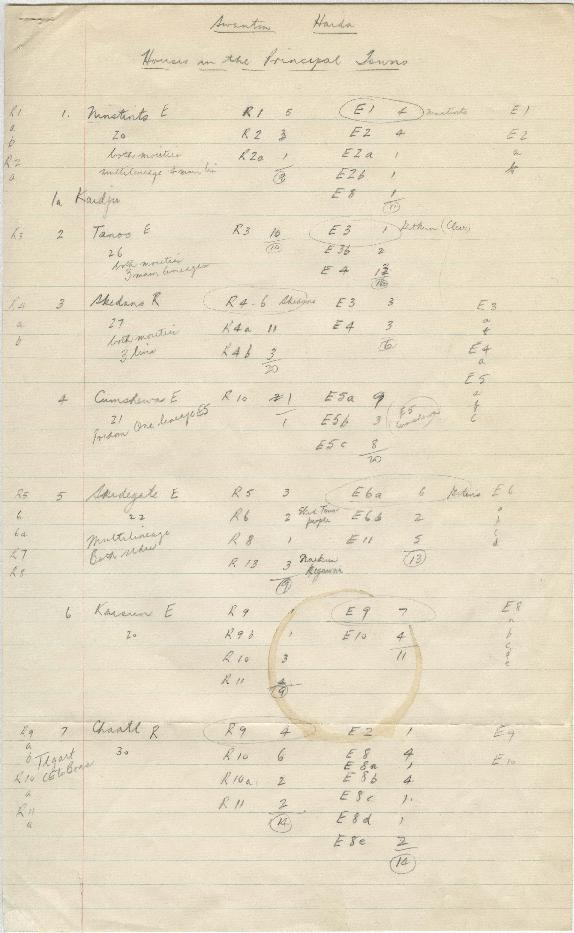 Swanton Haida
Houses in the Principal Towns
R1 1. Ninstints E R1 5 E1 4 Ninstints E1
a 20 R2 3 E2 4 E2
b both moieties R2a 1 E2a 1 a
R2 multilineage 4 main lin 9 E2b 1 b
a E8 1
1a Kaidju 11
R3 2 Tanoo E R3 10 E3 1 Jitkun (Clew)
26 10 E3b 2
both moieties E4 13
3 main lineages 16
R4 3 Skedans R R4-6 Skedans E3 3 E3
a 27 R4a 11 E4 3 a
b both moieties R4b 3 6 b
3 lines 20 E4
a
E5
4 Cumshewa E R10 1 E5a 9 a
21 1 E5b 3 E5 Cumshewa b
One lineage E5 E5c 8 c
20
R5 5 Skidegate E R5 3 E6a 6 E6
6 22 R6 2 people E6b 2 a
6a Multilineage R8 1 E11 5 b
R7 Both sides R13 3 13 c
R8 9 d
6 Kaisun E R9 1 E9 7 E8
20 R9b 1 E10 4 a
R10 3 11 b
R11 4 c
9 d
e
R9 7 Chaatl R R9 4 E2 1 E9
a 30 R10 6 E8 4 E10
b E8a 1
R10 R10a 2 E8b 4
a R11 2 E8c 1
R11 14 E8d 1
a E8e 2
14